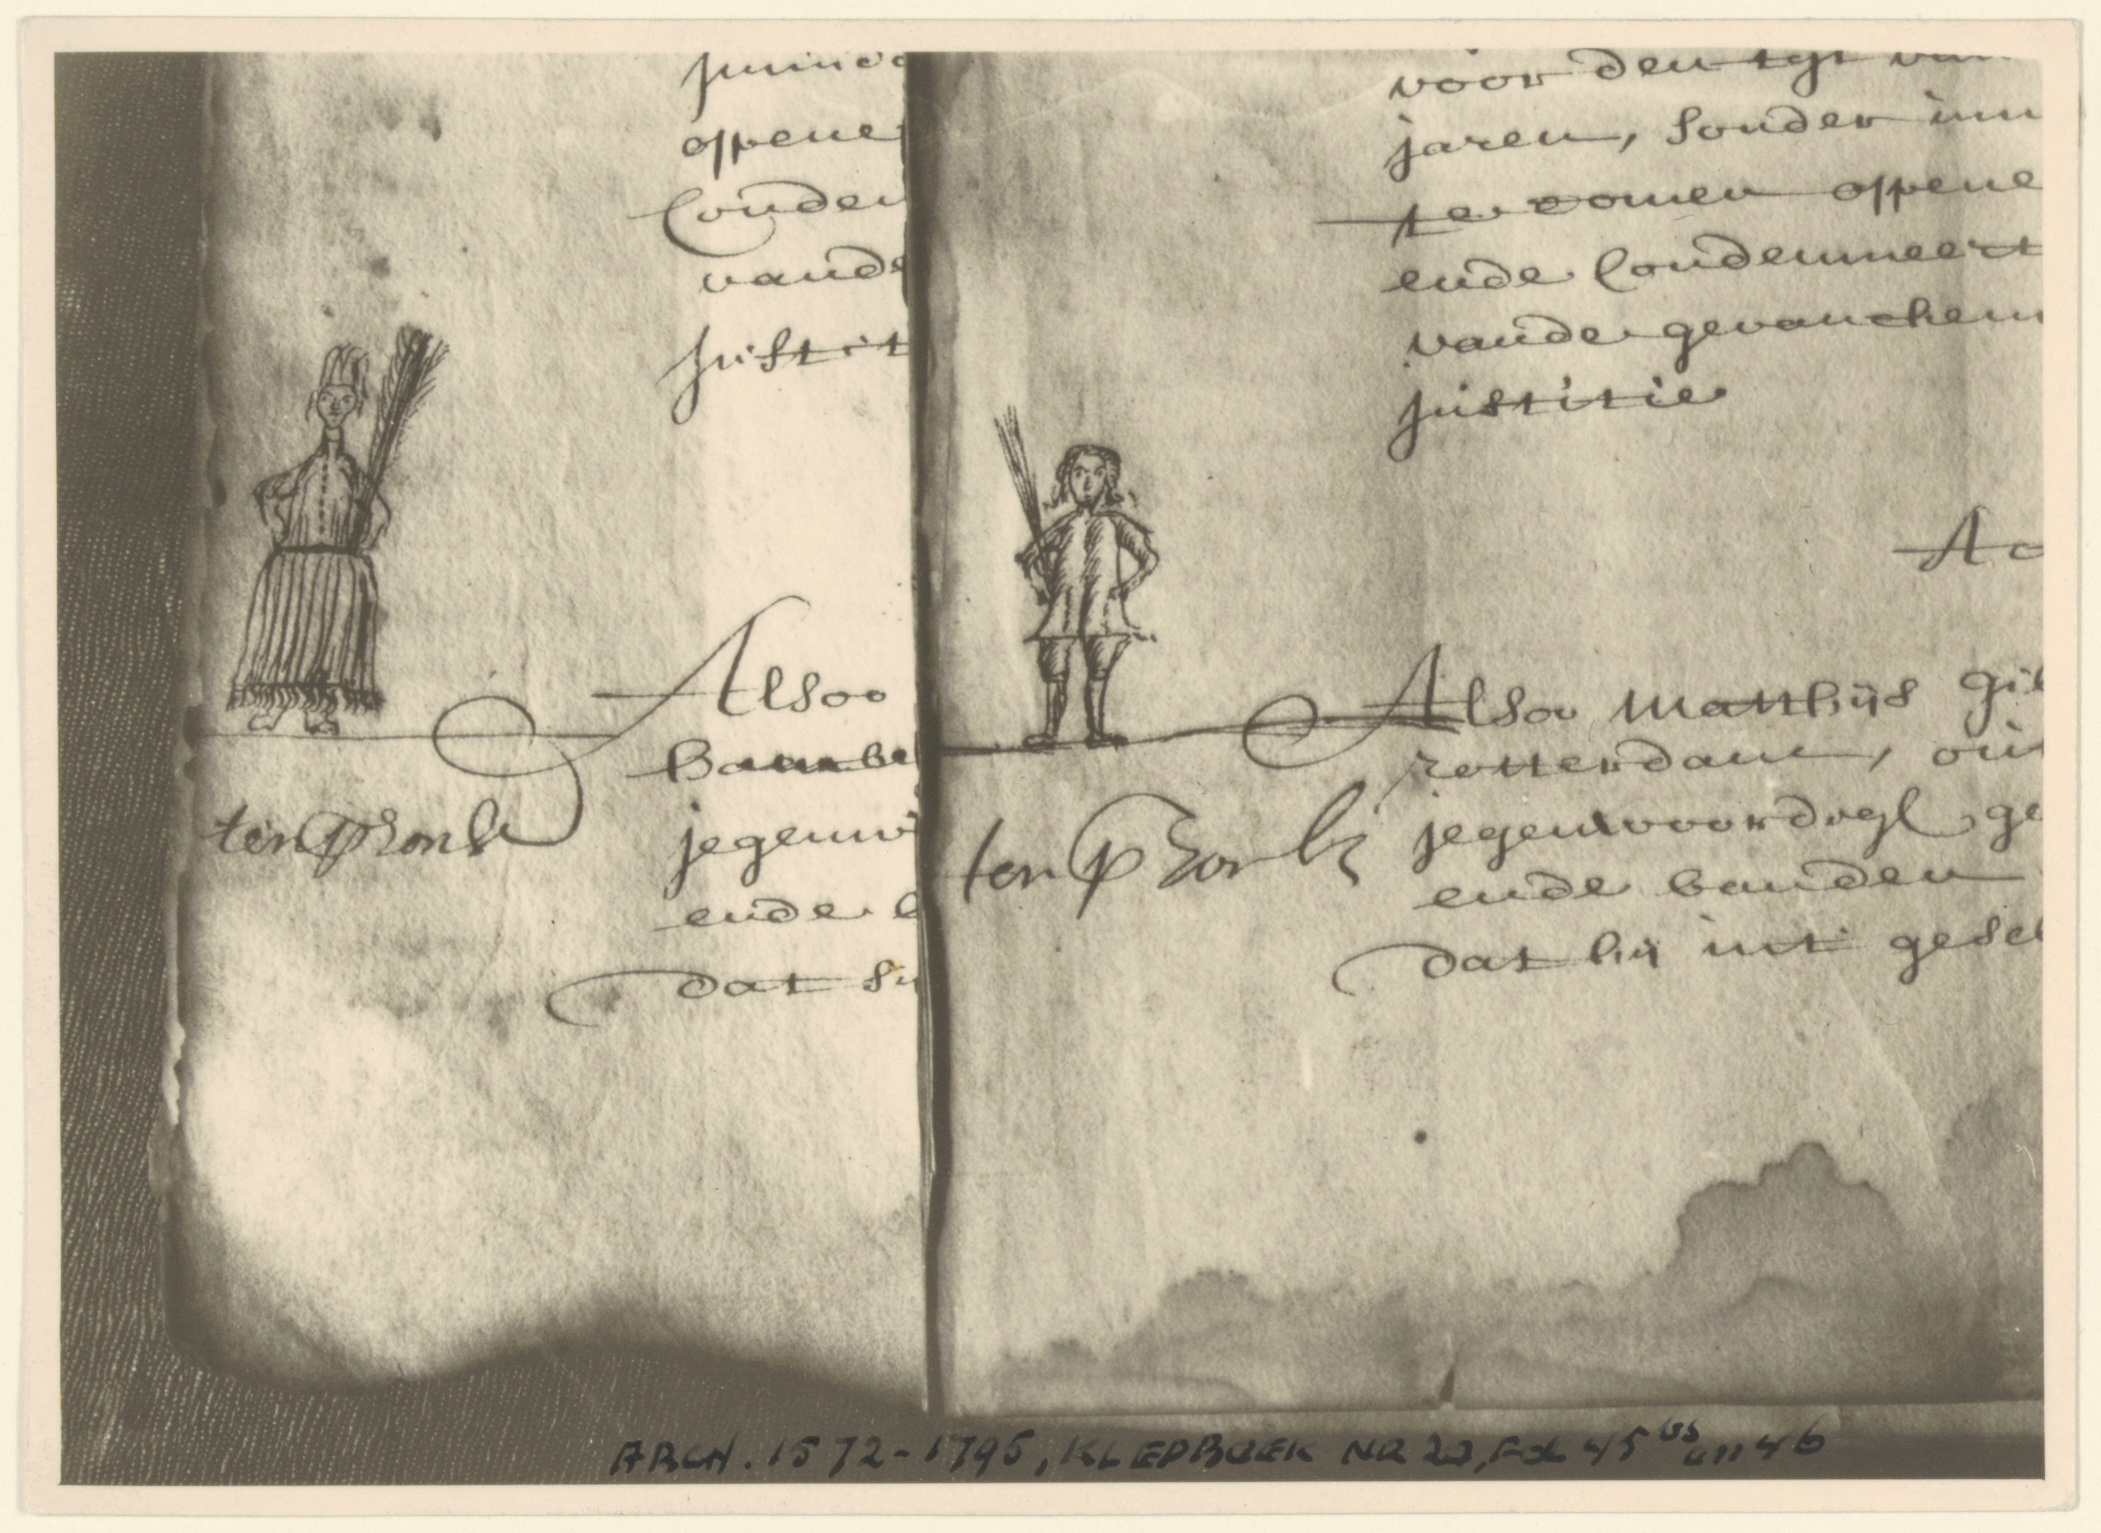 junico
oppene
Conden
vande
Justit
Alsoo
Baerbe
jegenw
ende b
dat sy
ten pronk
voor den tyt van
jaren, sonder inn
te comen oppene
ende Condemneert
vande gevanckenn
Justitie
Ac
Alsoo Matthijs Gil
rotterdam, out
jegenwoordigl ge
ende banden
dat hij int gesel
ten pronk
ARCH. 1572-1795, KLEPBOEK NR 23, Fol 45 bis en 46